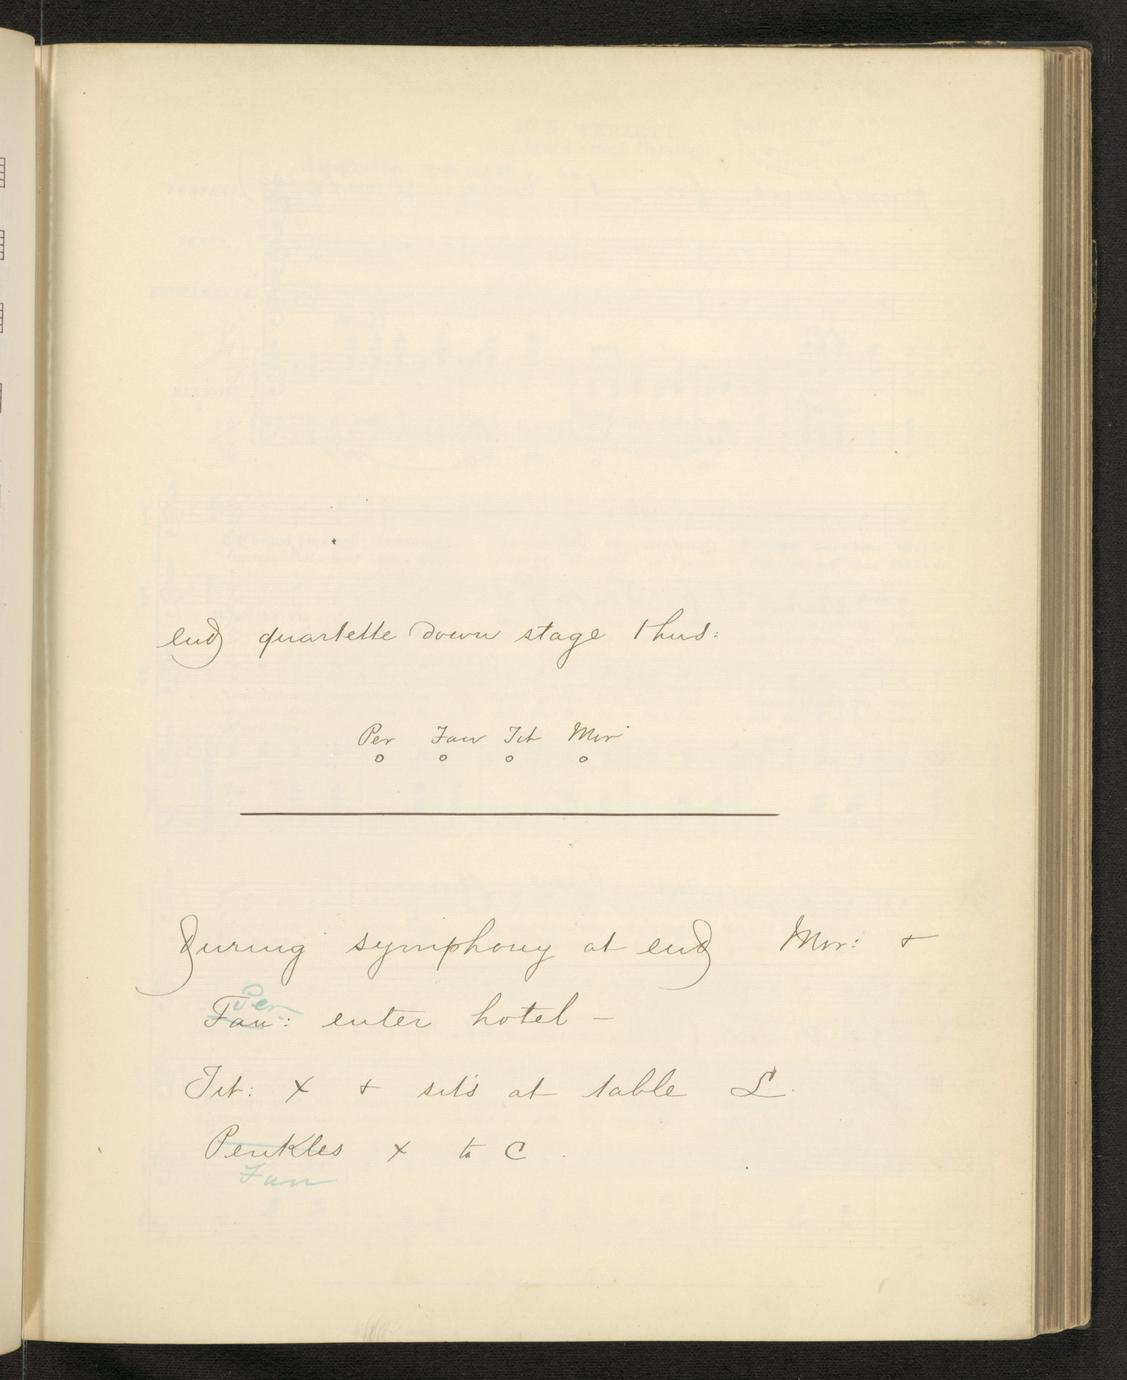 end quartette down stage thus:
Per Fan Tit Mor
o o o o
During symphony at end Mor: +
Per
Fan: enter hotel –
Tit: x + sits at table L.
Perikles x to C.
Fan